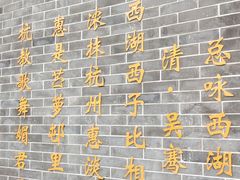 总咏西湖
清·吴骞
西湖西子比相
浓抹杭州惠淡
惠是苎萝邨里
杭教歌舞媚君